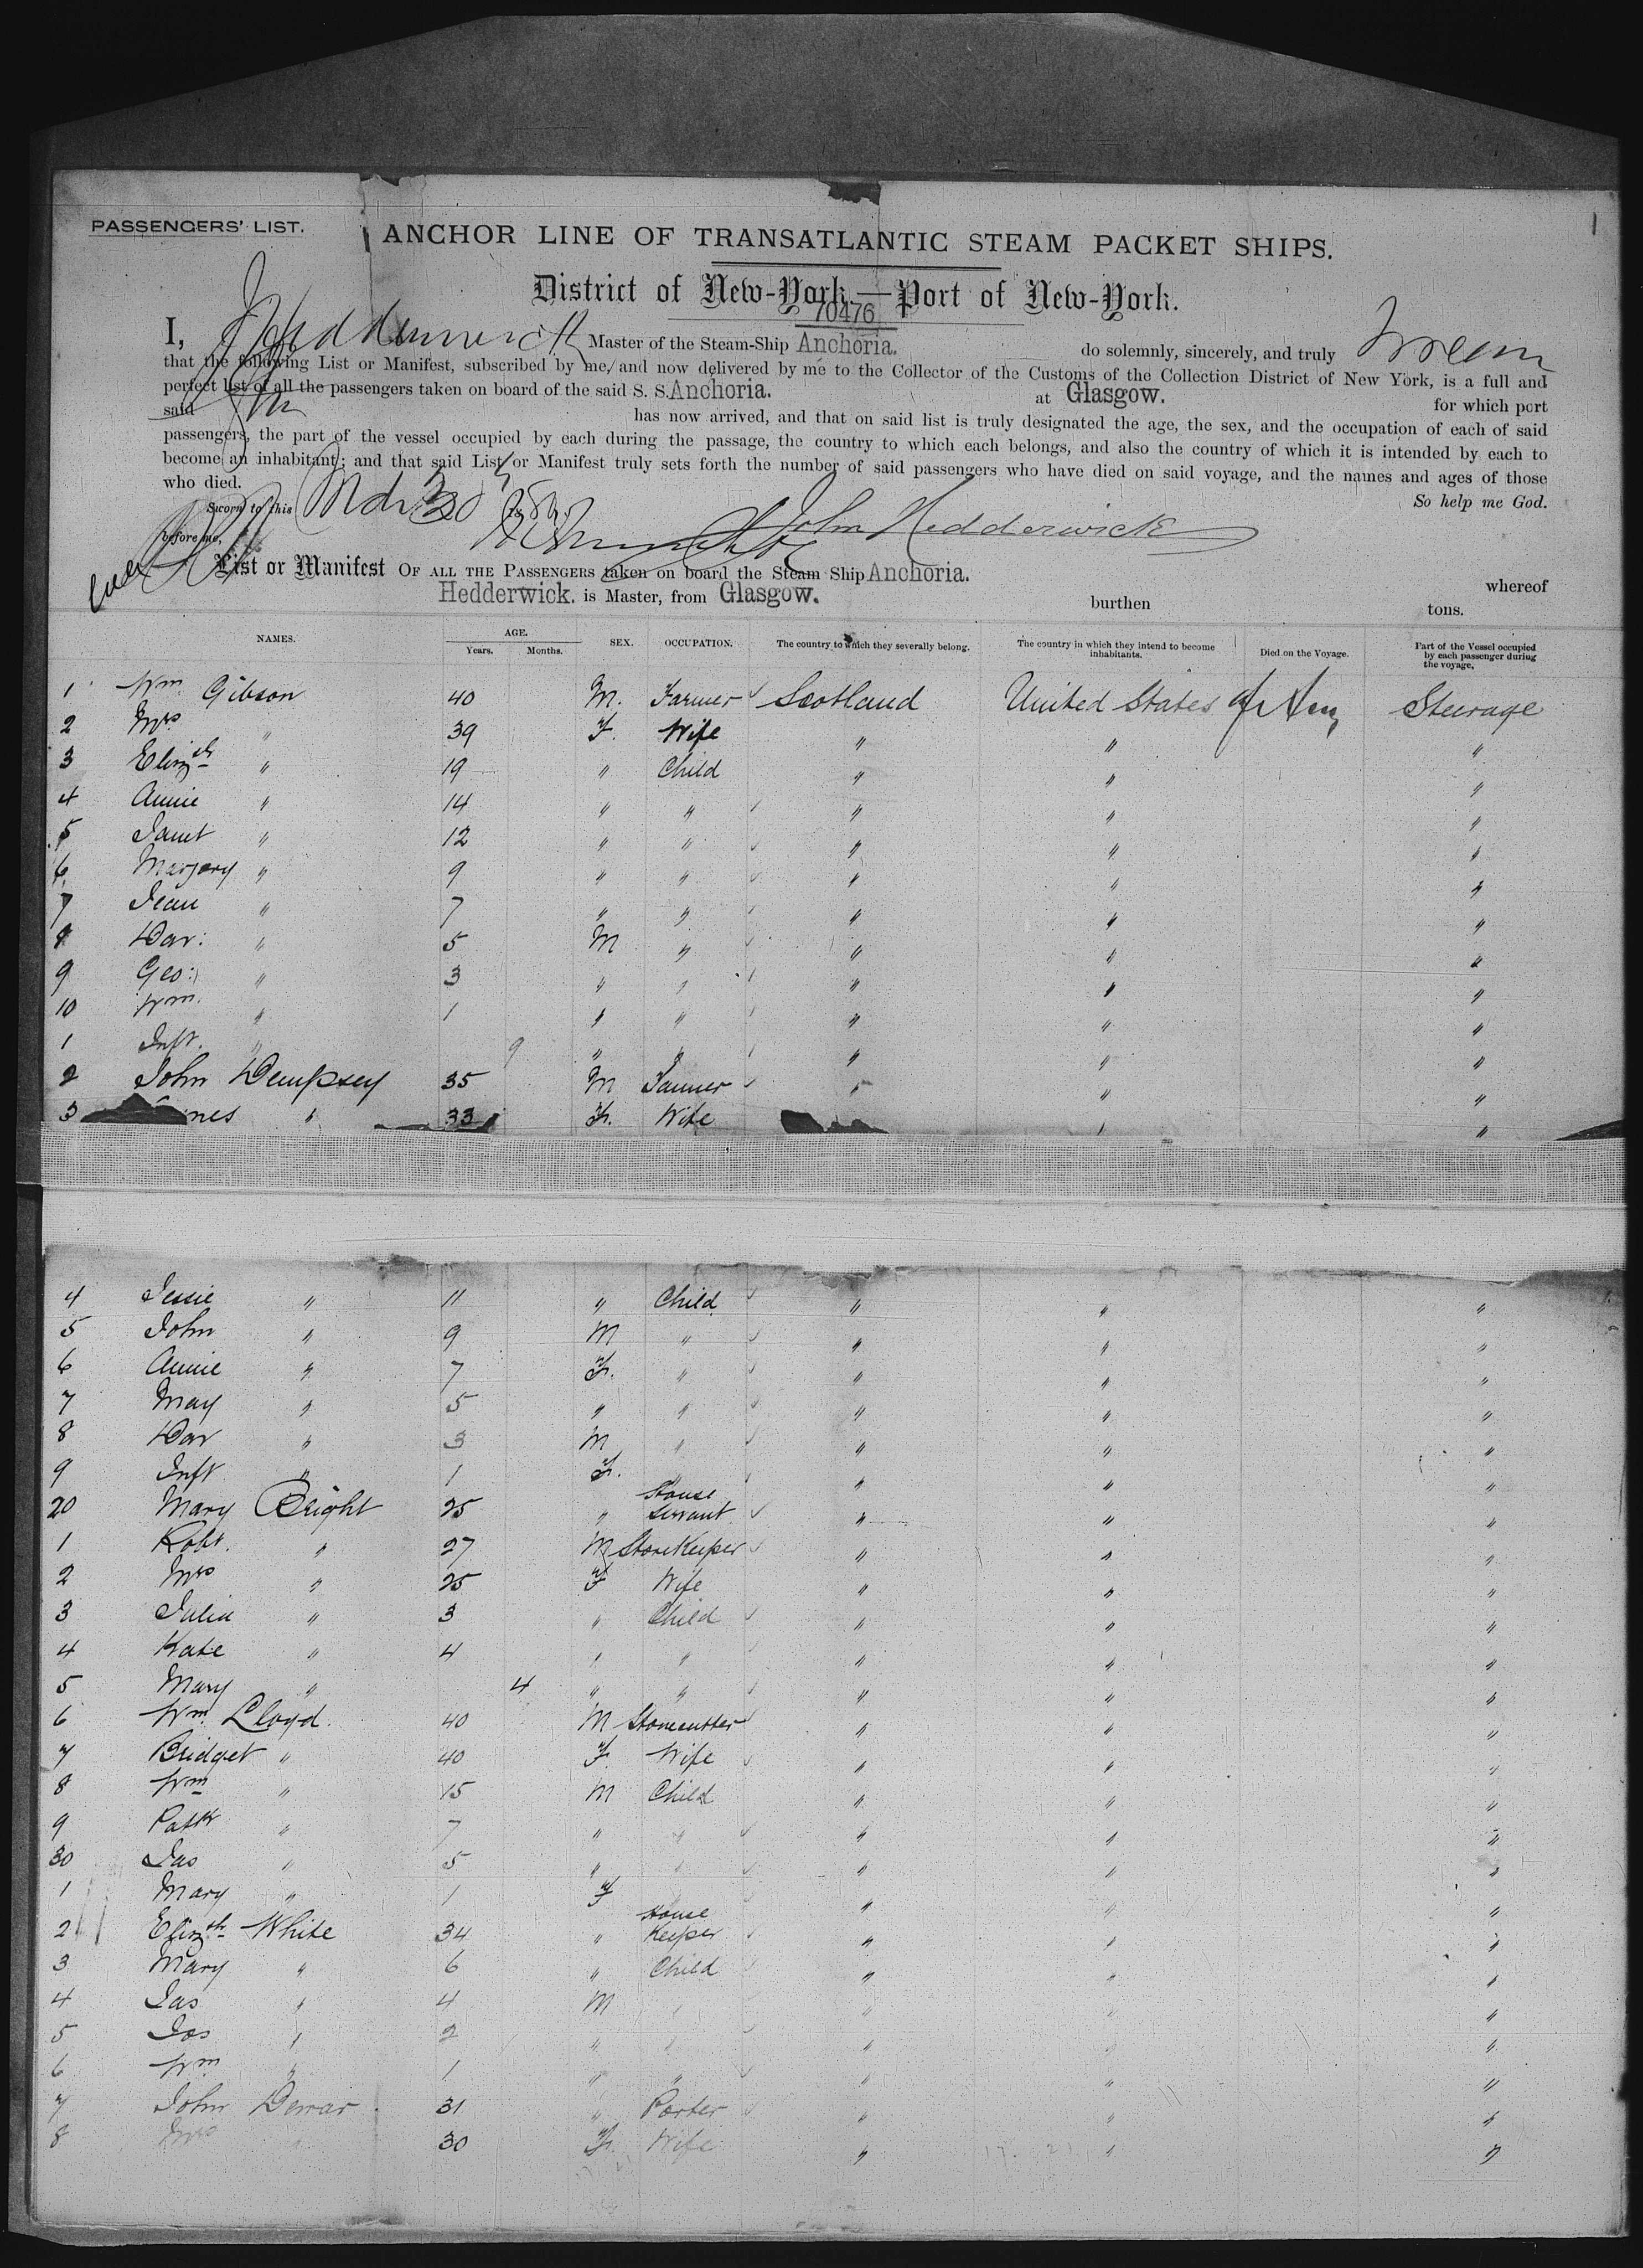 PASSENGERS' LIST.
ANCHOR LINE OF TRANSATLANTIC STEAM PACKET SHIPS.
District of New-York.—Port of New-York.
70476
I, J Hedderwick Master of the Steam-Ship Anchoria. do solemnly, sincerely, and truly swear
that the following List or Manifest, subscribed by me, and now delivered by me to the Collector of the Customs of the Collection District of New York, is a full and
perfect list of all the passengers taken on board of the said S. S. Anchoria. at Glasgow. for which port
said has now arrived, and that on said list is truly designated the age, the sex, and the occupation of each of said
passengers, the part of the vessel occupied by each during the passage, the country to which each belongs, and also the country of which it is intended by each to
become an inhabitant; and that said List or Manifest truly sets forth the number of said passengers who have died on said voyage, and the names and ages of those
who died. So help me God.
Sworn to this Mch 30
before me, John Hedderwick
List or Manifest OF ALL THE PASSENGERS taken on board the Steam Ship Anchoria. whereof
Hedderwick. is Master, from Glasgow. burthen tons.
NAMES. AGE. Years. Months. SEX. OCCUPATION. The country to which they severally belong. The country in which they intend to become inhabitants. Died on the Voyage. Part of the Vessel occupied by each passenger during the voyage.
1 Wm. Gibson 40 M. Farmer Scotland United States of Am. Steerage
2 Mrs " 39 F. Wife " " "
3 Elizth " 19 " Child " " "
4 Annie " 14 " " " " "
5 Janet " 12 " " " " "
6 Marjory " 9 " " " " "
7 Jean " 7 " " " " "
8 Dav: " 5 M " " " "
9 Geo: " 3 " " " " "
10 Wm. " 1 " " " " "
1 Inft. " 9 " " " " "
2 John Dempsey 35 M Farmer " " "
3 nes " 33 F. Wife " "
4 Jessie " 11 " Child " " "
5 John " 9 M " " " "
6 Annie " 7 F. " " " "
7 May " 5 " " " " "
8 Dav " 3 M " " " "
9 Inft " 1 F. " " " "
20 Mary Bright 25 " House Servant " " "
1 Robt. " 27 M StoreKeeper " " "
2 Mrs " 25 F Wife " " "
3 Julia " 3 " Child " " "
4 Kate " 4 " " " " "
5 Mary " 4 " " " " "
6 Wm. Lloyd. 40 M Stonecutter " " "
7 Bridget " 40 F. Wife " " "
8 Wm " 15 M Child " " "
9 Patk " 7 " " " " "
30 Jas " 5 " " " " "
1 Mary " 1 F " " "
2 Elizth White 34 " House Keeper " " "
3 Mary " 6 " Child " " "
4 Jas " 4 M " " " "
5 Jos " 2 " " " " "
6 Wm " 1 " " " " "
7 John Dewar 31 " Porter " " "
8 Mrs " 30 F. Wife " " "